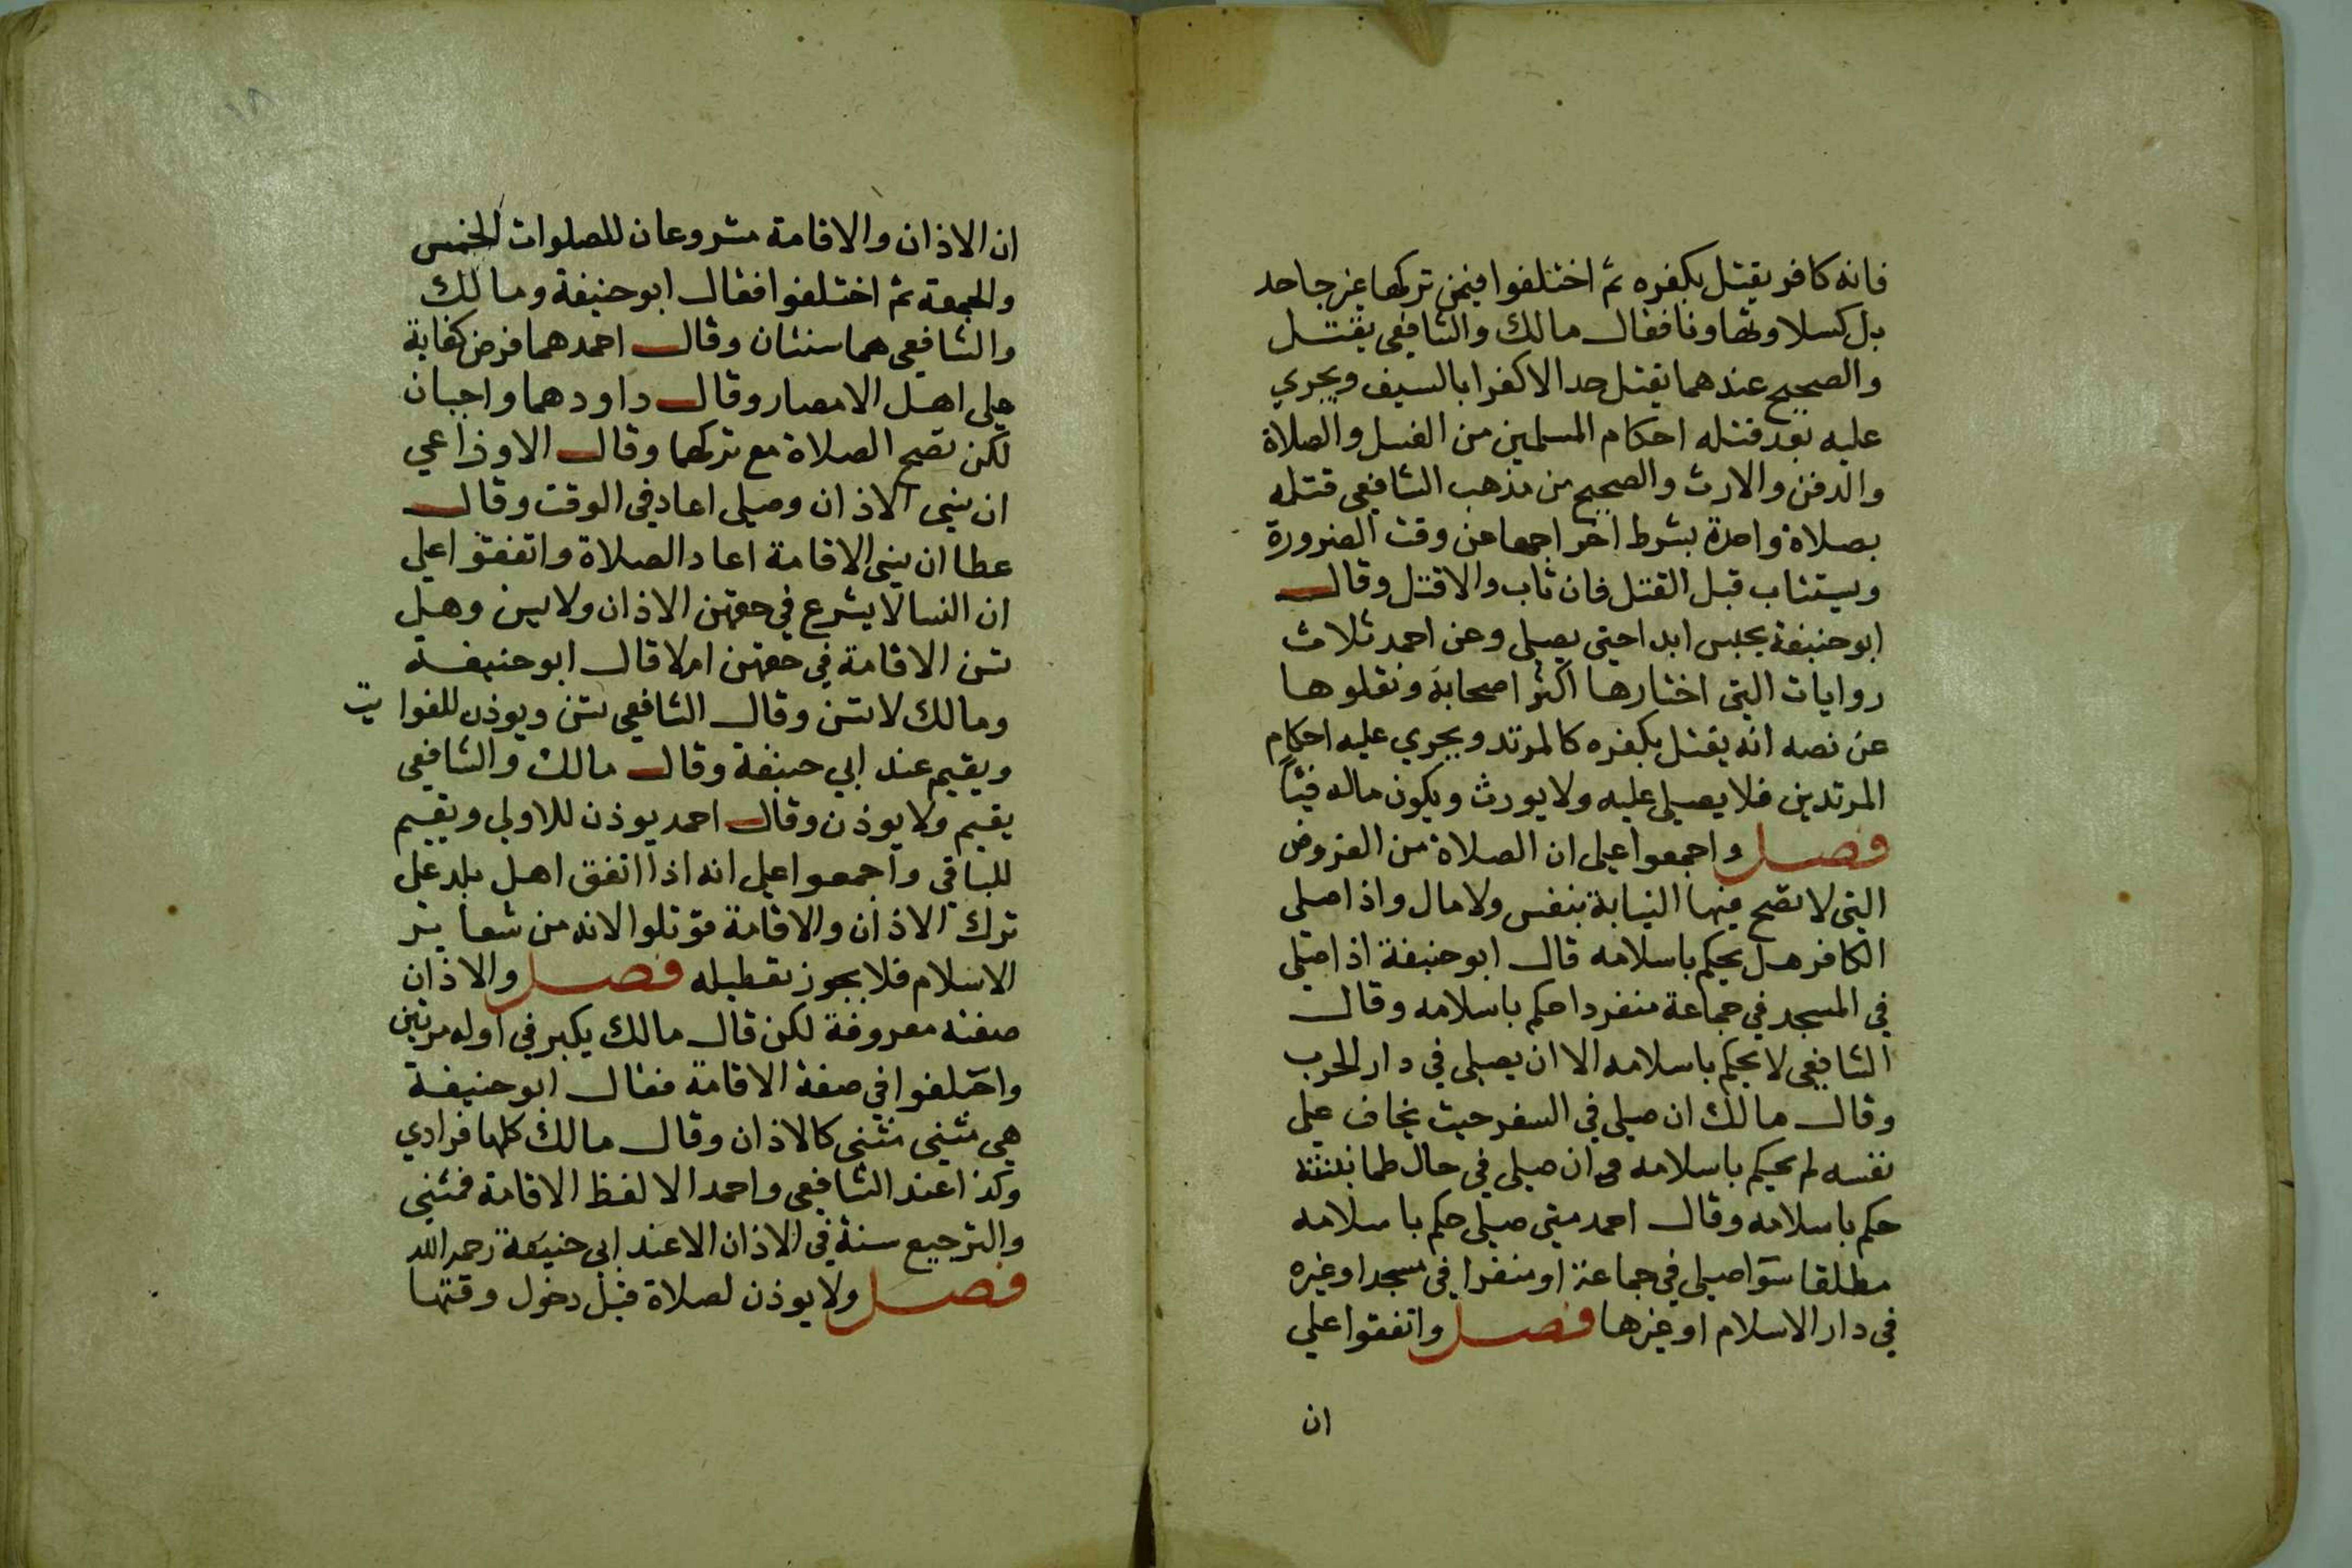 فانه كافر يقتل بكفره ثم اختلفوا فيمن تركها غير جاحد
بل كسلا وتهاونا فقال مالك والشافعي يقتل
والصحيح عندهما يقتل حدا لا كفرا بالسيف ويجري
عليه بعد قتله احكام المسلمين من الغسل والصلاة
والدفن والارث والصحيح من مذهب الشافعي قتله
بصلاة واحدة بشرط اخراجها عن وقت الضرورة
ويستتاب قبل القتل فان تاب والا قتل وقال
ابو حنيفة يحبس ابدا حتى يصلي وعن احمد ثلاث
روايات التي اختارها اكثر اصحابه ونقلوها
عن نصه انه يقتل بكفره كالمرتد ويجري عليه احكام
المرتدين فلا يصلي عليه ولا يورث ويكون ماله فيئا
فصل واجمعوا على ان الصلاة من الفروض
التي لا تصح فيها النيابة بنفس ولا مال واذا صلى
الكافر هل يحكم باسلامه قال ابو حنيفة اذا صلى
في المسجد في جماعة منفردا حكم باسلامه وقال
الشافعي لا يحكم باسلامه الا ان يصلي في دار الحرب
وقال مالك ان صلى في السفر حيث يخاف على
نفسه لم يحكم باسلامه وان صلى في حال طمانينته
حكم باسلامه وقال احمد متى صلى حكم باسلامه
مطلقا سوا صلى في جماعة او منفرا في مسجد او غيره
في دار الاسلام او غيرها فصل واتفقوا على
ان
١٨
ان الاذان والاقامة مشروعان للصلوات الخمس
والجمعة ثم اختلفوا فقال ابو حنيفة ومالك
والشافعي هما سنتان وقال احمد هما فرض كفاية
على اهل الامصار وقال داود هما واجبان
لكن تصح الصلاة مع تركهما وقال الاوزاعي
ان نسي الاذان وصلى اعاد في الوقت وقال
عطا ان نسي الاقامة اعاد الصلاة واتفقوا على
ان النسا لا يشرع في حقهن الاذان ولا يسن وهل
تسن الاقامة في حقهن ام لا قال ابو حنيفة
ومالك لا تسن وقال الشافعي تسن ويوذن للفوايت
ويقيم عند ابي حنيفة وقال مالك والشافعي
يقيم ولا يوذن وقال احمد يوذن للاولى ويقيم
للباقي واجمعوا على انه اذا اتفق اهل بلد على
ترك الاذان والاقامة قوتلوا لانه من شعاير
الاسلام فلا يجوز تعطيله فصل والاذان
صفته معروفة لكن قال مالك يكبر في اوله مرتين
واختلفوا في صفة الاقامة فقال ابو حنيفة
هي مثنى مثنى كالاذان وقال مالك كلها فرادي
وكذا عند الشافعي واحمد الا لفظ الاقامة فمثنى
والترجيع سنة في الاذان الا عند ابي حنيفة رحمه الله
فصل ولا يوذن لصلاة قبل دخول وقتها